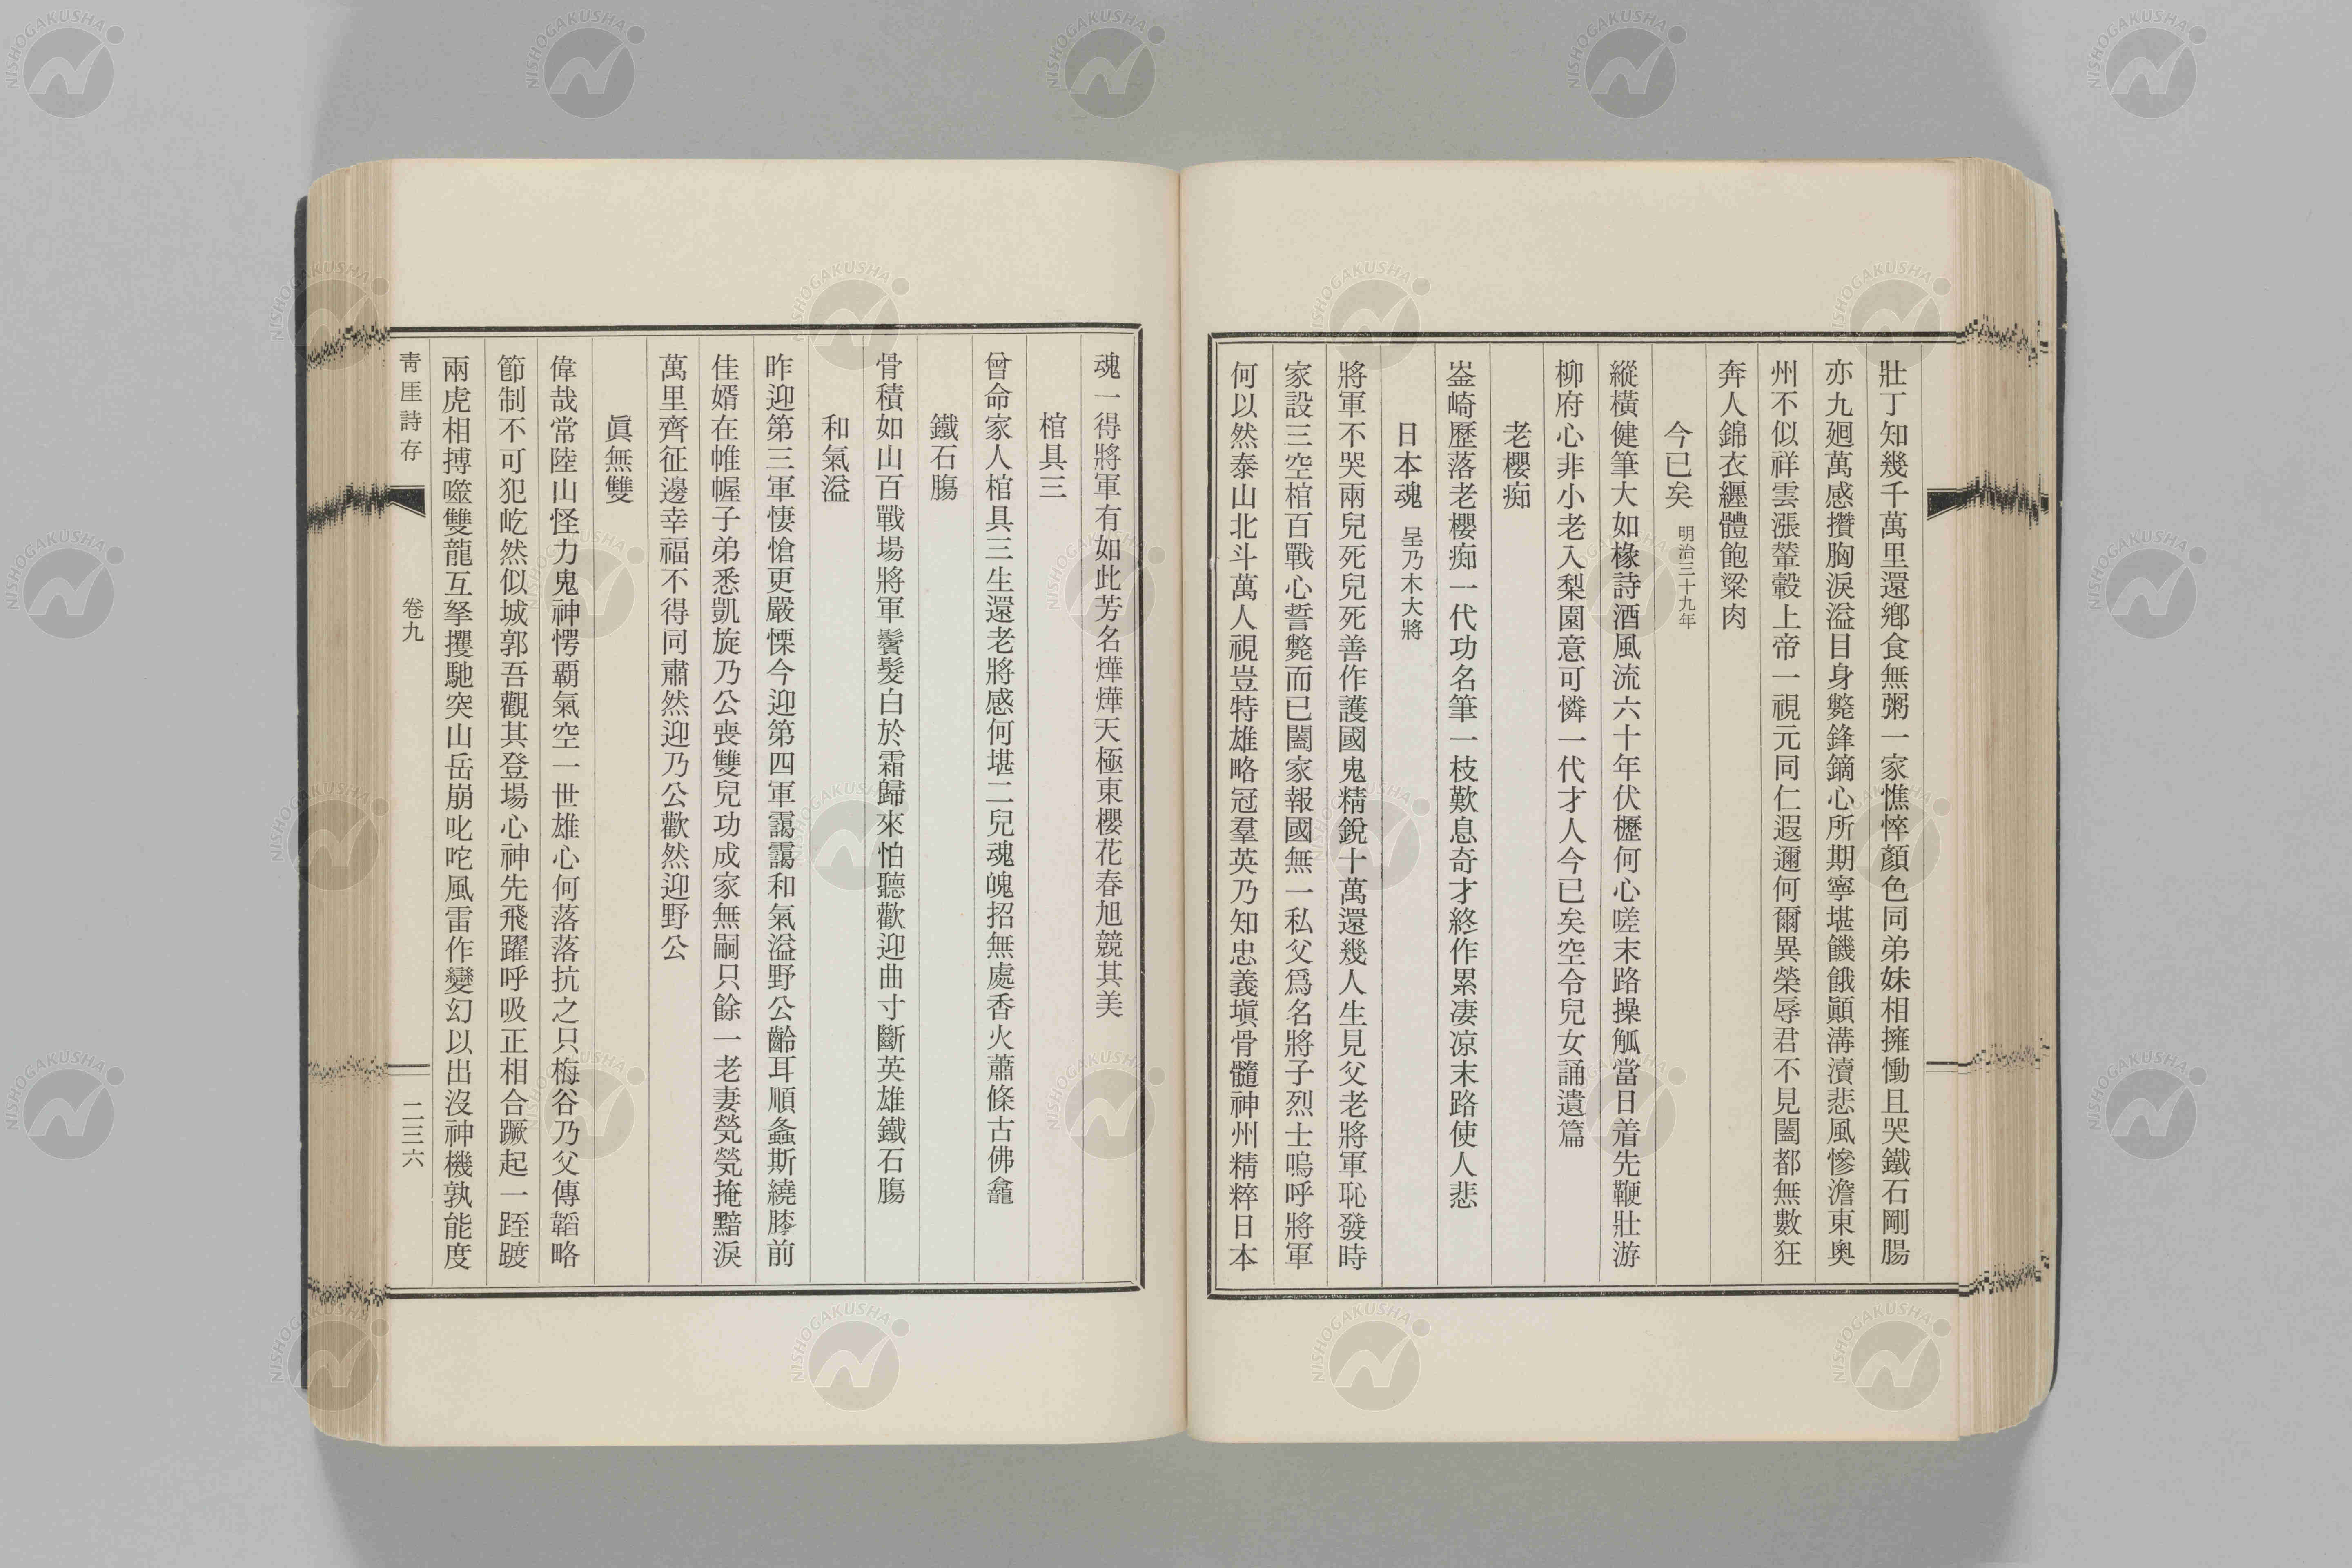 壯丁知幾千萬里還鄕食無粥一家憔悴顏色同弟妹相擁慟且哭鐵石剛腸
亦九廻萬感攢胸淚溢目身斃鋒鏑心所期寧堪饑餓顚溝瀆悲風慘澹東奧
州不似祥雲漲輦轂上帝一視元同仁遐邇何爾異榮辱君不見闔都無數狂
奔人錦衣纒體飽粱肉
今已矣 明治三十九年
縱橫健筆大如椽詩酒風流六十年伏櫪何心嗟末路操觚當日着先鞭壯游
柳府心非小老入梨園意可憐一代才人今已矣空令兒女誦遺篇
老櫻痴
崟崎歷落老櫻痴一代功名筆一枝歎息奇才終作累凄凉末路使人悲
日本魂 呈乃木大將
將軍不哭兩兒死兒死善作護國鬼精銳十萬還幾人生見父老將軍恥發時
家設三空棺百戰心誓斃而已闔家報國無一私父爲名將子烈士嗚呼將軍
何以然泰山北斗萬人視豈特雄略冠羣英乃知忠義塡骨髓神州精粹日本
魂一得將軍有如此芳名燁燁天極東櫻花春旭競其美
棺具三
曾命家人棺具三生還老將感何堪二兒魂魄招無處香火蕭條古佛龕
鐵石膓
骨積如山百戰場將軍鬢髮白於霜歸來怕聽歡迎曲寸斷英雄鐵石膓
和氣溢
昨迎第三軍悽愴更嚴慄今迎第四軍靄靄和氣溢野公齡耳順螽斯繞膝前
佳婿在帷幄子弟悉凱旋乃公喪雙兒功成家無嗣只餘一老妻煢煢掩黯淚
萬里齊征邊幸福不得同肅然迎乃公歡然迎野公
眞無雙
偉哉常陸山怪力鬼神愕覇氣空一世雄心何落落抗之只梅谷乃父傳韜略
節制不可犯屹然似城郭吾觀其登場心神先飛躍呼吸正相合蹶起一跮踱
兩虎相搏噬雙龍互拏攫馳突山岳崩叱咤風雷作變幻以出沒神機孰能度
靑厓詩存
卷九
二三六
NISHOGAKUSHA